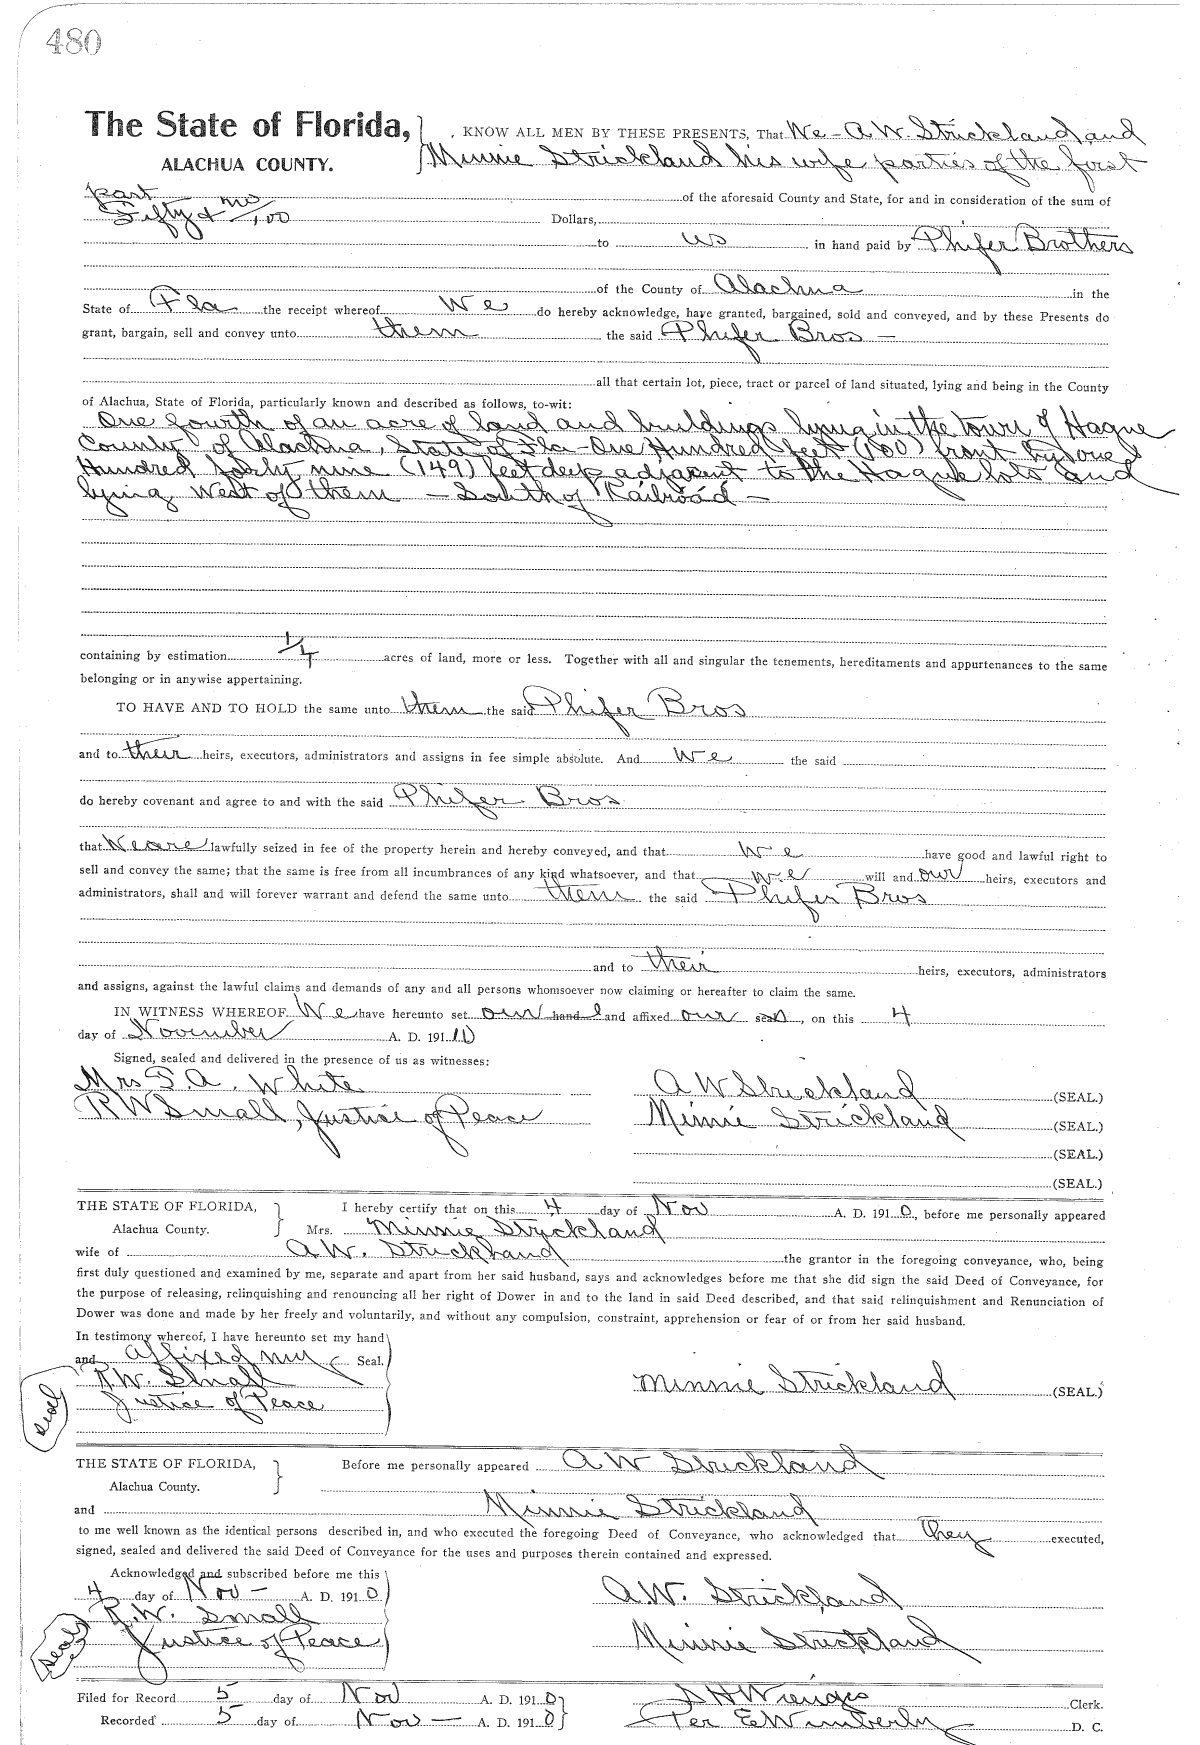 480
The State of Florida, KNOW ALL MEN BY THESE PRESENTS, That We - A. W. Strickland, and
ALACHUA COUNTY. Minnie Strickland his wife parties of the first
part of the aforesaid County and State, for and in consideration of the sum of
Fifty & no/100 Dollars,
to us in hand paid by Phifer Brothers
of the County of Alachua in the
State of Fla the receipt whereof We do hereby acknowledge, have granted, bargained, sold and conveyed, and by these Presents do
grant, bargain, sell and convey unto them the said Phifer Bros —
all that certain lot, piece, tract or parcel of land situated, lying and being in the County
of Alachua, State of Florida, particularly known and described as follows, to-wit:
One fourth of an acre of land and buildings lying in the town of Hague
County of Alachua, State of Fla - One Hundred feet (100) front by one
Hundred forty nine (149) feet deep adjacent to the Hague lots and
lying West of them — South of Railroad —
containing by estimation 1/4 acres of land, more or less. Together with all and singular the tenements, hereditaments and appurtenances to the same
belonging or in anywise appertaining.
TO HAVE AND TO HOLD the same unto them the said Phifer Bros
and to their heirs, executors, administrators and assigns in fee simple absolute. And We the said
do hereby covenant and agree to and with the said Phifer Bros
that We are lawfully seized in fee of the property herein and hereby conveyed, and that We have good and lawful right to
sell and convey the same; that the same is free from all incumbrances of any kind whatsoever, and that we will and our heirs, executors and
administrators, shall and will forever warrant and defend the same unto them the said Phifer Bros
and to their heirs, executors, administrators
and assigns, against the lawful claims and demands of any and all persons whomsoever now claiming or hereafter to claim the same.
IN WITNESS WHEREOF We have hereunto set our hand and affixed our seal, on this 4
day of November A. D. 1910
Signed, sealed and delivered in the presence of us as witnesses:
Mrs. T. A. White A W Strickland (SEAL.)
R W Small, Justice of Peace Minnie Strickland (SEAL.)
(SEAL.)
(SEAL.)
THE STATE OF FLORIDA, I hereby certify that on this 4 day of Nov A. D. 1910, before me personally appeared
Alachua County. Mrs. Minnie Strickland
wife of A. W. Strickland the grantor in the foregoing conveyance, who, being
first duly questioned and examined by me, separate and apart from her said husband, says and acknowledges before me that she did sign the said Deed of Conveyance, for
the purpose of releasing, relinquishing and renouncing all her right of Dower in and to the land in said Deed described, and that said relinquishment and Renunciation of
Dower was done and made by her freely and voluntarily, and without any compulsion, constraint, apprehension or fear of or from her said husband.
In testimony whereof, I have hereunto set my hand
and affixed my Seal.
R. W. Small Minnie Strickland (SEAL.)
Justice of Peace
Seal
THE STATE OF FLORIDA, Before me personally appeared A W Strickland
Alachua County.
and Minnie Strickland
to me well known as the identical persons described in, and who executed the foregoing Deed of Conveyance, who acknowledged that they executed,
signed, sealed and delivered the said Deed of Conveyance for the uses and purposes therein contained and expressed.
Acknowledged and subscribed before me this
4 day of Nov — A. D. 1910 A. W. Strickland
R. W. Small
Seal Justice of Peace Minnie Strickland
Filed for Record 5 day of Nov A. D. 1910 S H Wienges Clerk.
Recorded 5 day of Nov — A. D. 1910 Per E Wimberly D. C.